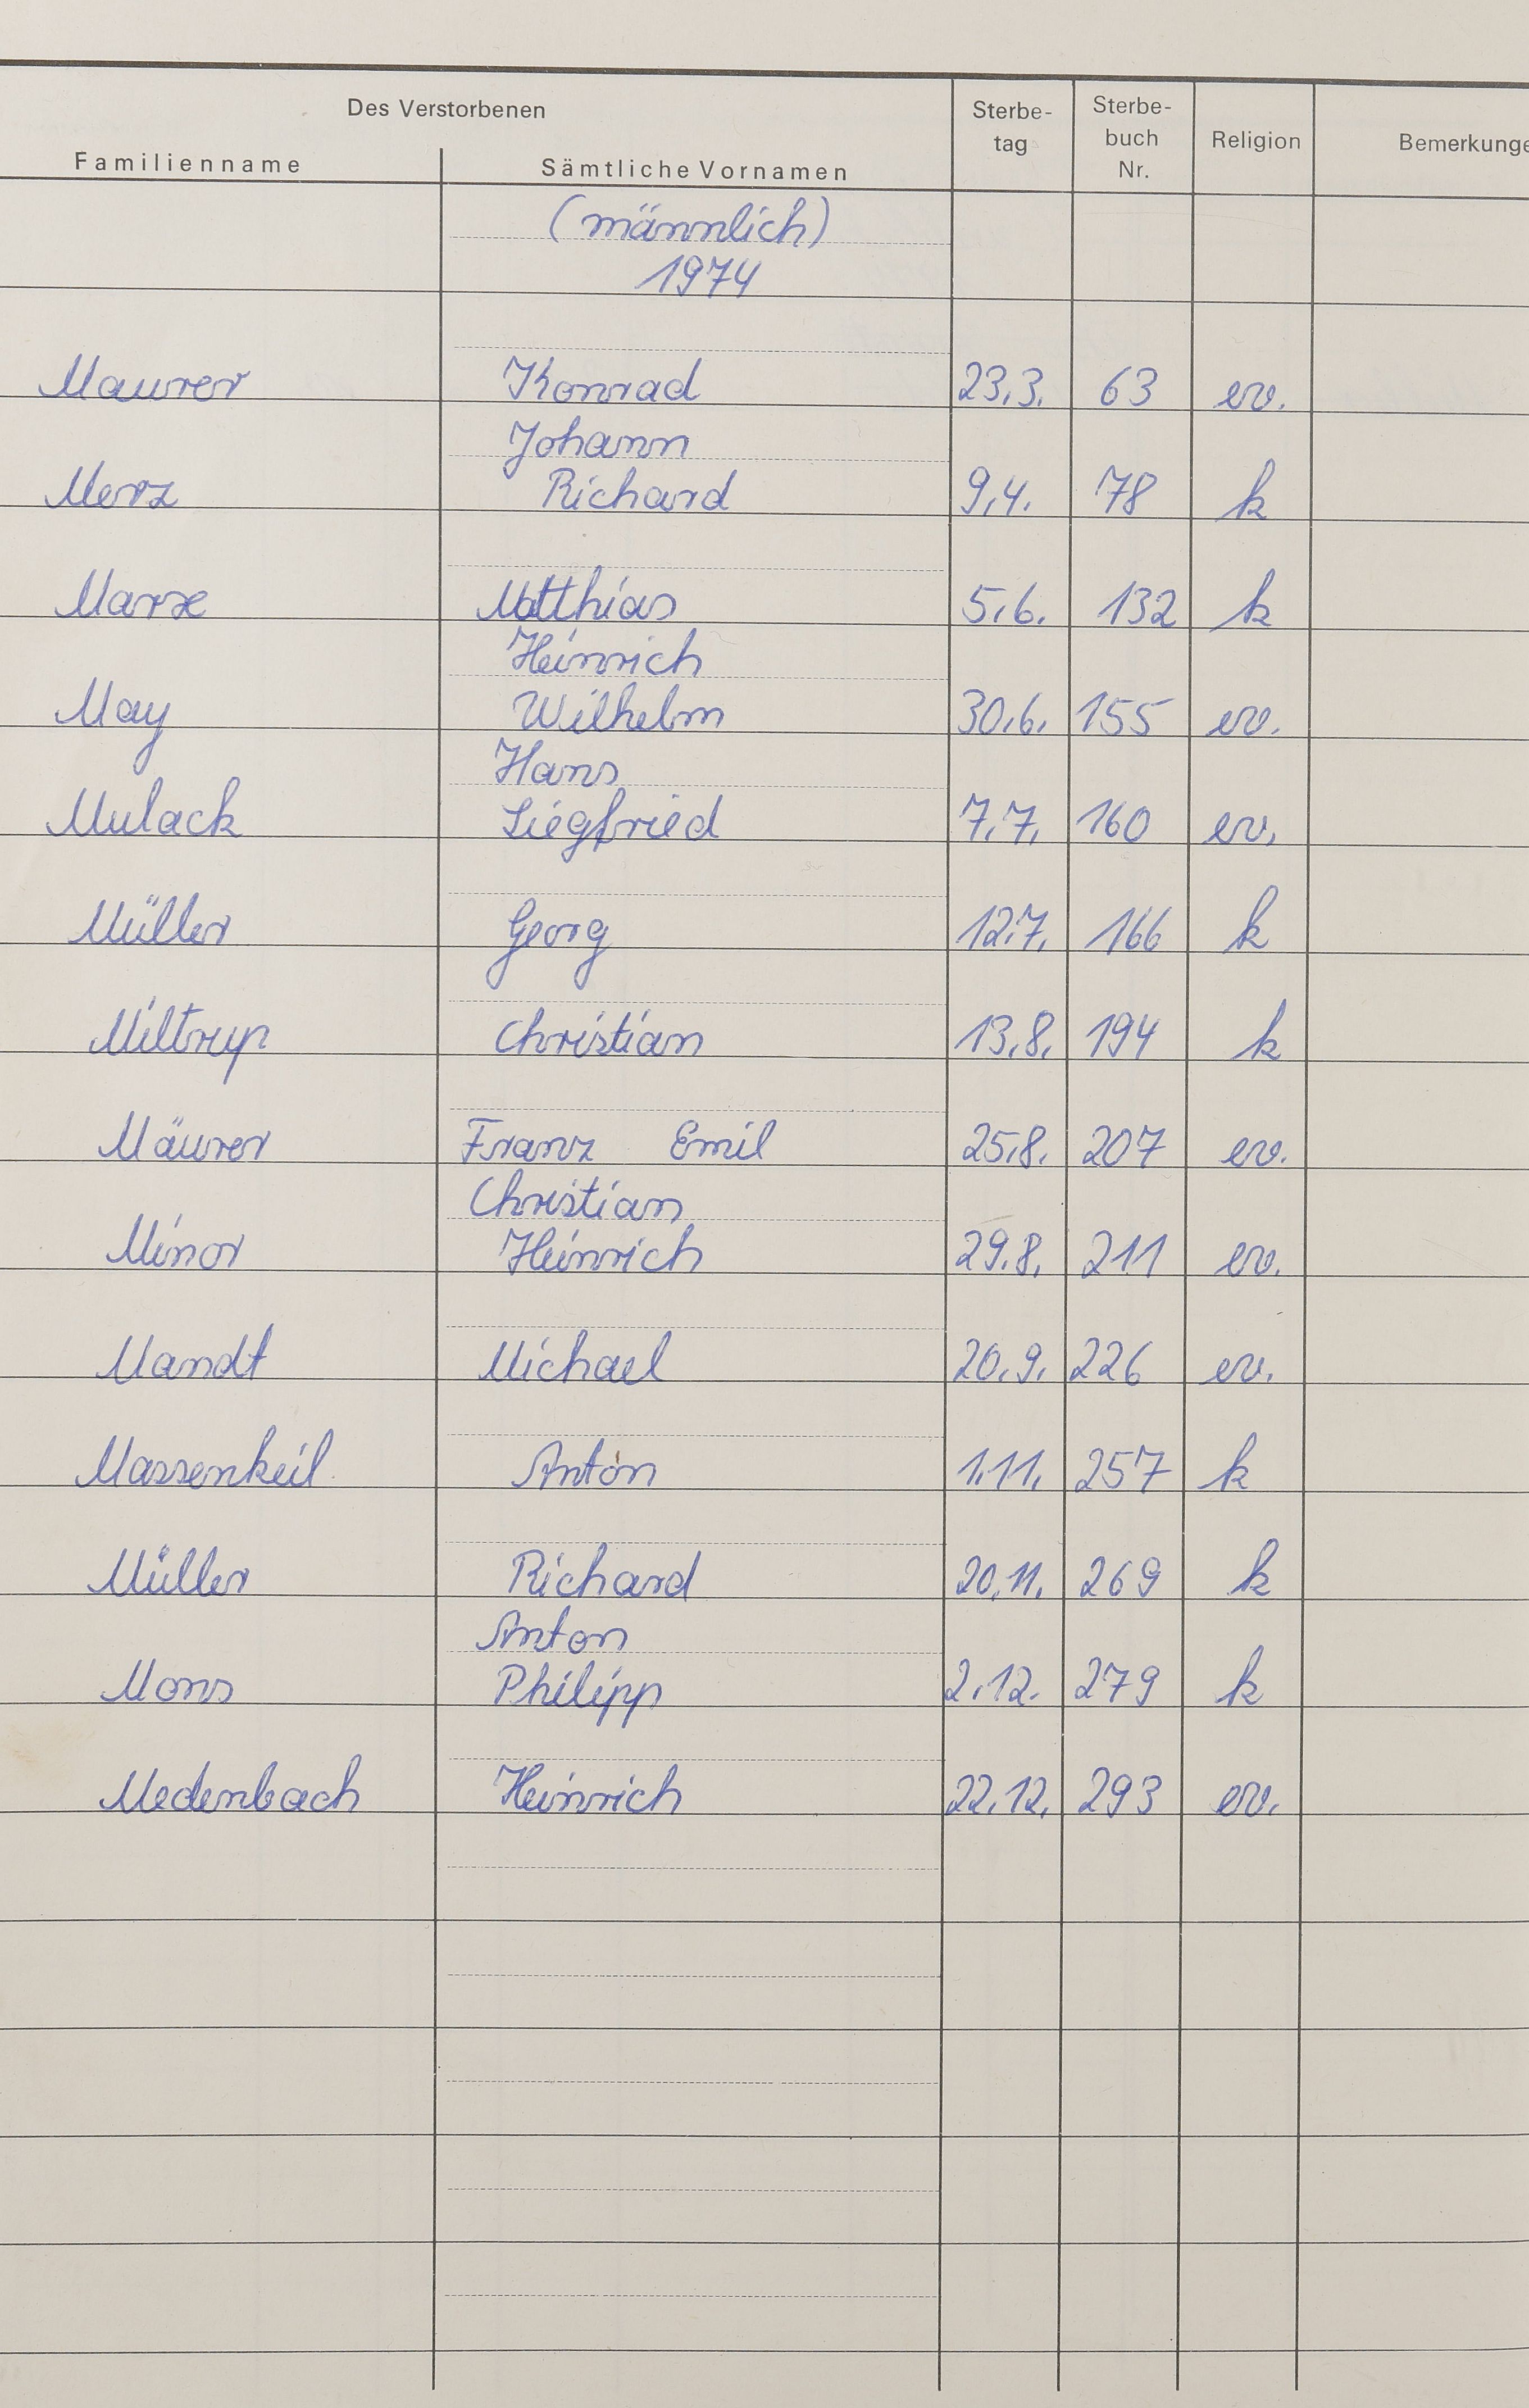 Des Verstorbenen
Familienname Sämtliche Vornamen Sterbe-tag Sterbe-buch Nr. Religion Bemerkunge
(männlich)
1974
Maurer Konrad 23.3. 63 ev.
Johann
Merz Richard 9.4. 78 k
Marx Matthias 5.6. 132 k
Heinrich
May Wilhelm 30.6. 155 ev.
Hans
Mulack Siegfried 7.7. 160 ev.
Müller Georg 12.7. 166 k
Miltrup Christian 13.8. 194 k
Mäurer Franz Emil 25.8. 207 ev.
Christian
Minor Heinrich 29.8. 211 ev.
Mandt Michael 20.9. 226 ev.
Massenkeil Anton 1.11. 257 k
Müller Richard 20.11. 269 k
Anton
Mons Philipp 2.12. 279 k
Medenbach Heinrich 22.12. 293 ev.